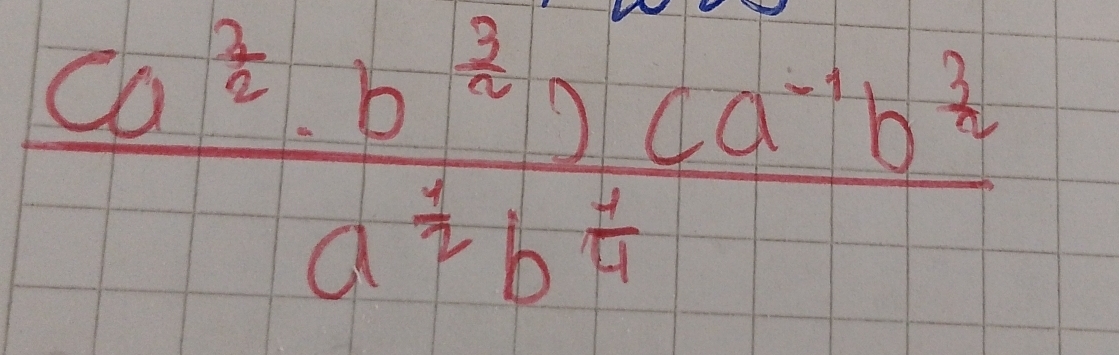 (a^{3/2} . b^{3/2}) (a^{-1} b^{3/2}
a^{1/2} b^{1/4}